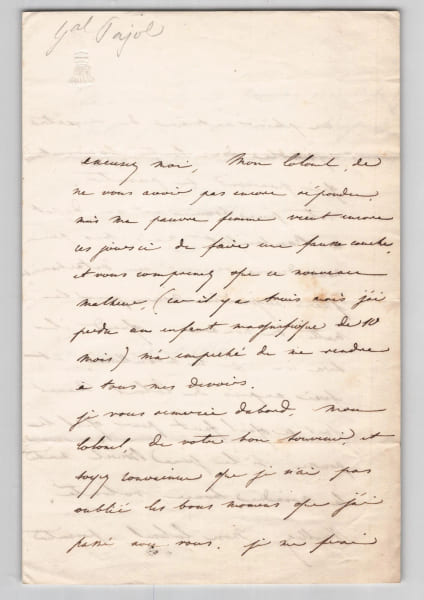 Gal Pajol
excusez moi, Mon Colonel, de
ne vous avoir pas encore répondu,
mais ma pauvre femme vient encore
ces jours ci de faire une fausse couche,
et vous comprenez que ce nouveau
malheur, (car il y a trois mois j'ai
perdu un enfant magnifique de 10
mois) m'a empêché de me rendre
à tous mes devoirs.
je vous remercie d'abord, mon
Colonel, de votre bon souvenir, et
soyez convaincu que je n'ai pas
oublié les bons moments que j'ai
passé avec vous. je me ferai